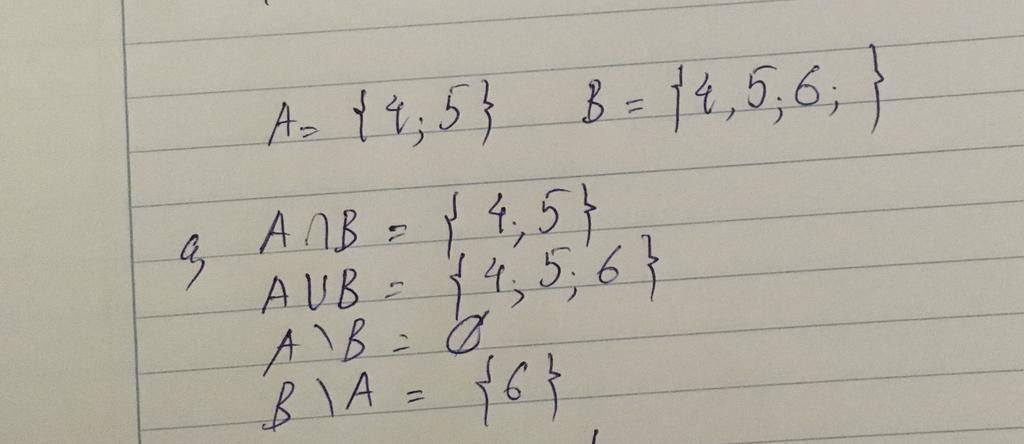 A = {4; 5} B = {4, 5; 6; }
a, A∩B = {4; 5}
A∪B = {4; 5; 6}
A \ B = Ø
B \ A = {6}